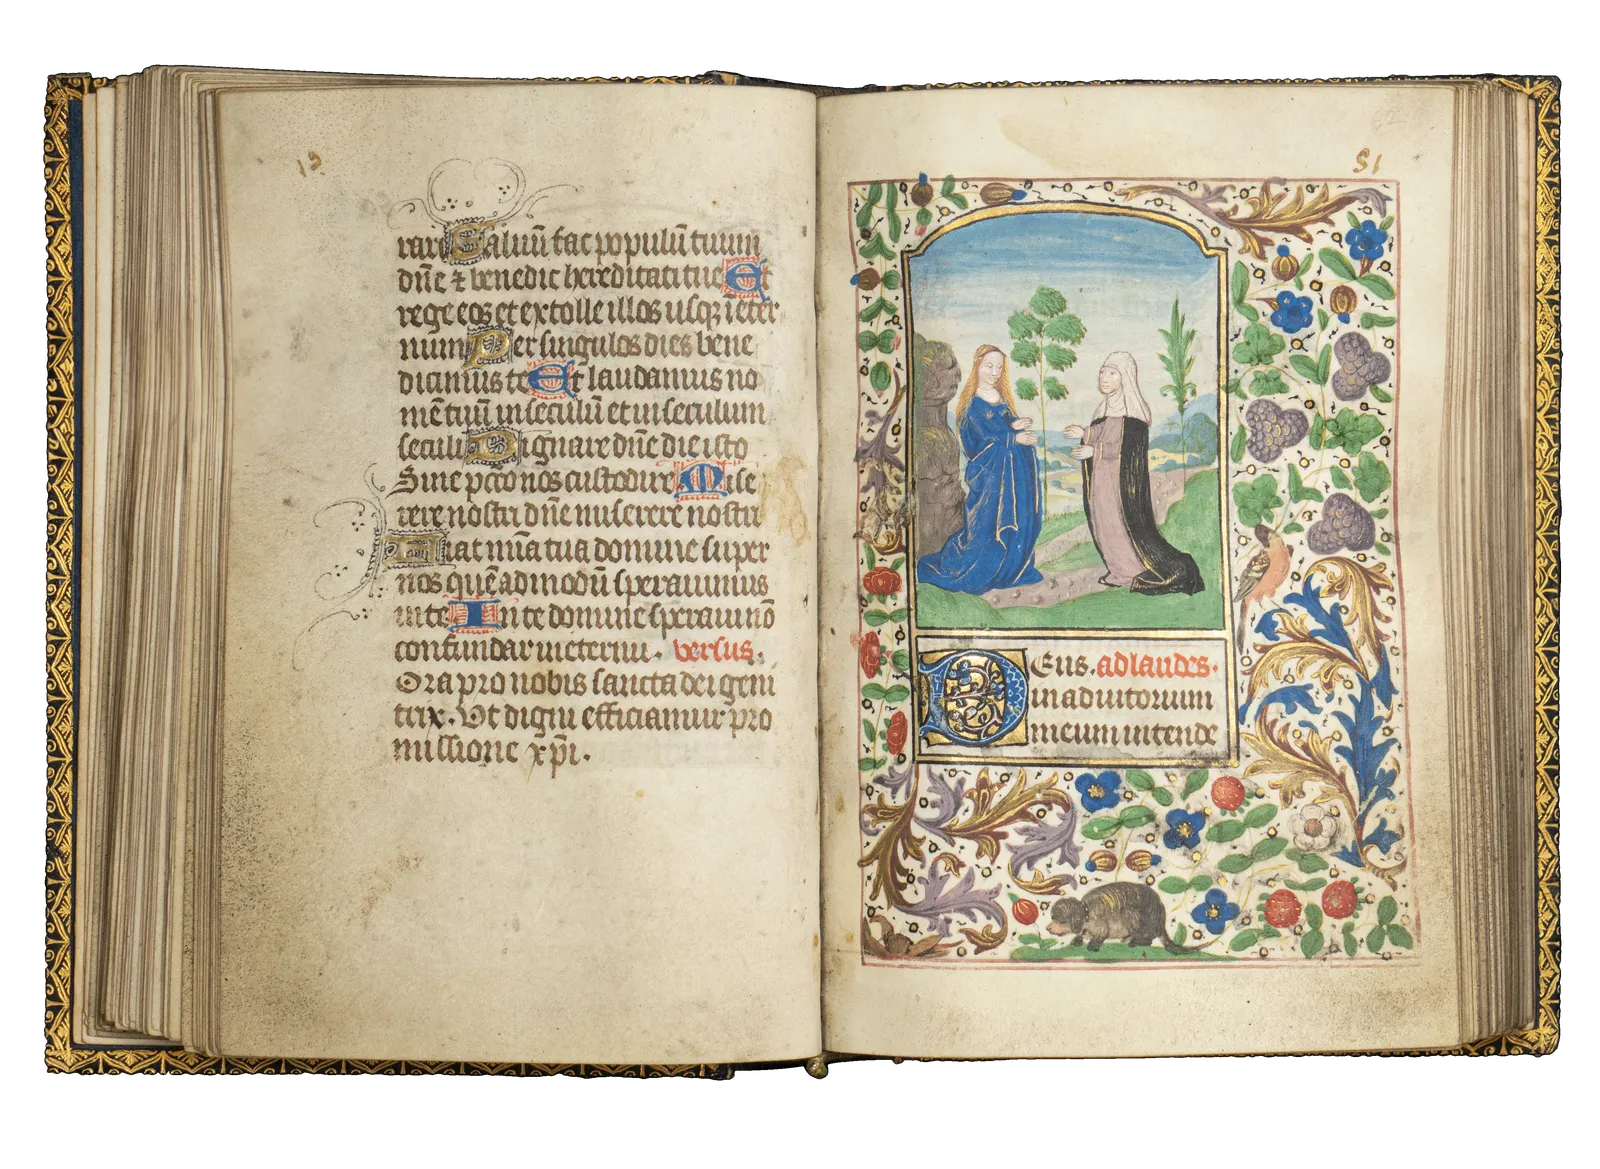 rari Saluū fac populū tuum
dn̄e ⁊ benedic hereditati tue Et
rege eos et extolle illos usqꝫ ī eter
num Per singulos dies bene
dicimus te Et laudamus no
mē tuū in seculū et in seculum
seculi Dignare dn̄e die isto
Sine pctō nos custodire Mise
rere nostri dn̄e miserere nostri
Fiat mīa tua domine super
nos quē admodū speravimus
in te In te domine speravi nō
confundar in eternū. versus.
Ora pro nobis sancta dei geni
trix. Ut digni efficiamur pro
missione xp̄i.
51
Deus. ad laudes.
in adiutorium
meum intende